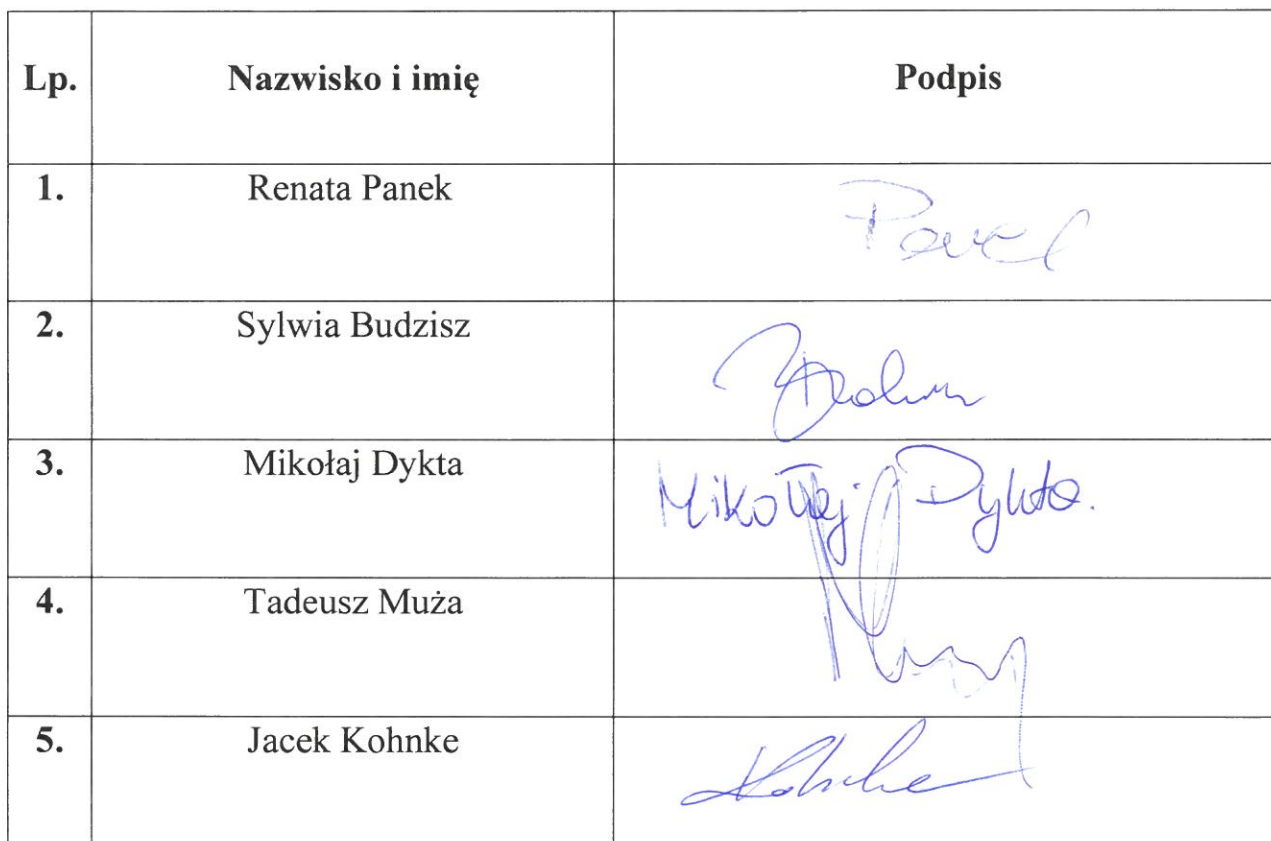 Lp. Nazwisko i imię Podpis
1. Renata Panek
2. Sylwia Budzisz
3. Mikołaj Dykta Mikołaj Dykta.
4. Tadeusz Muża
5. Jacek Kohnke Kohnke